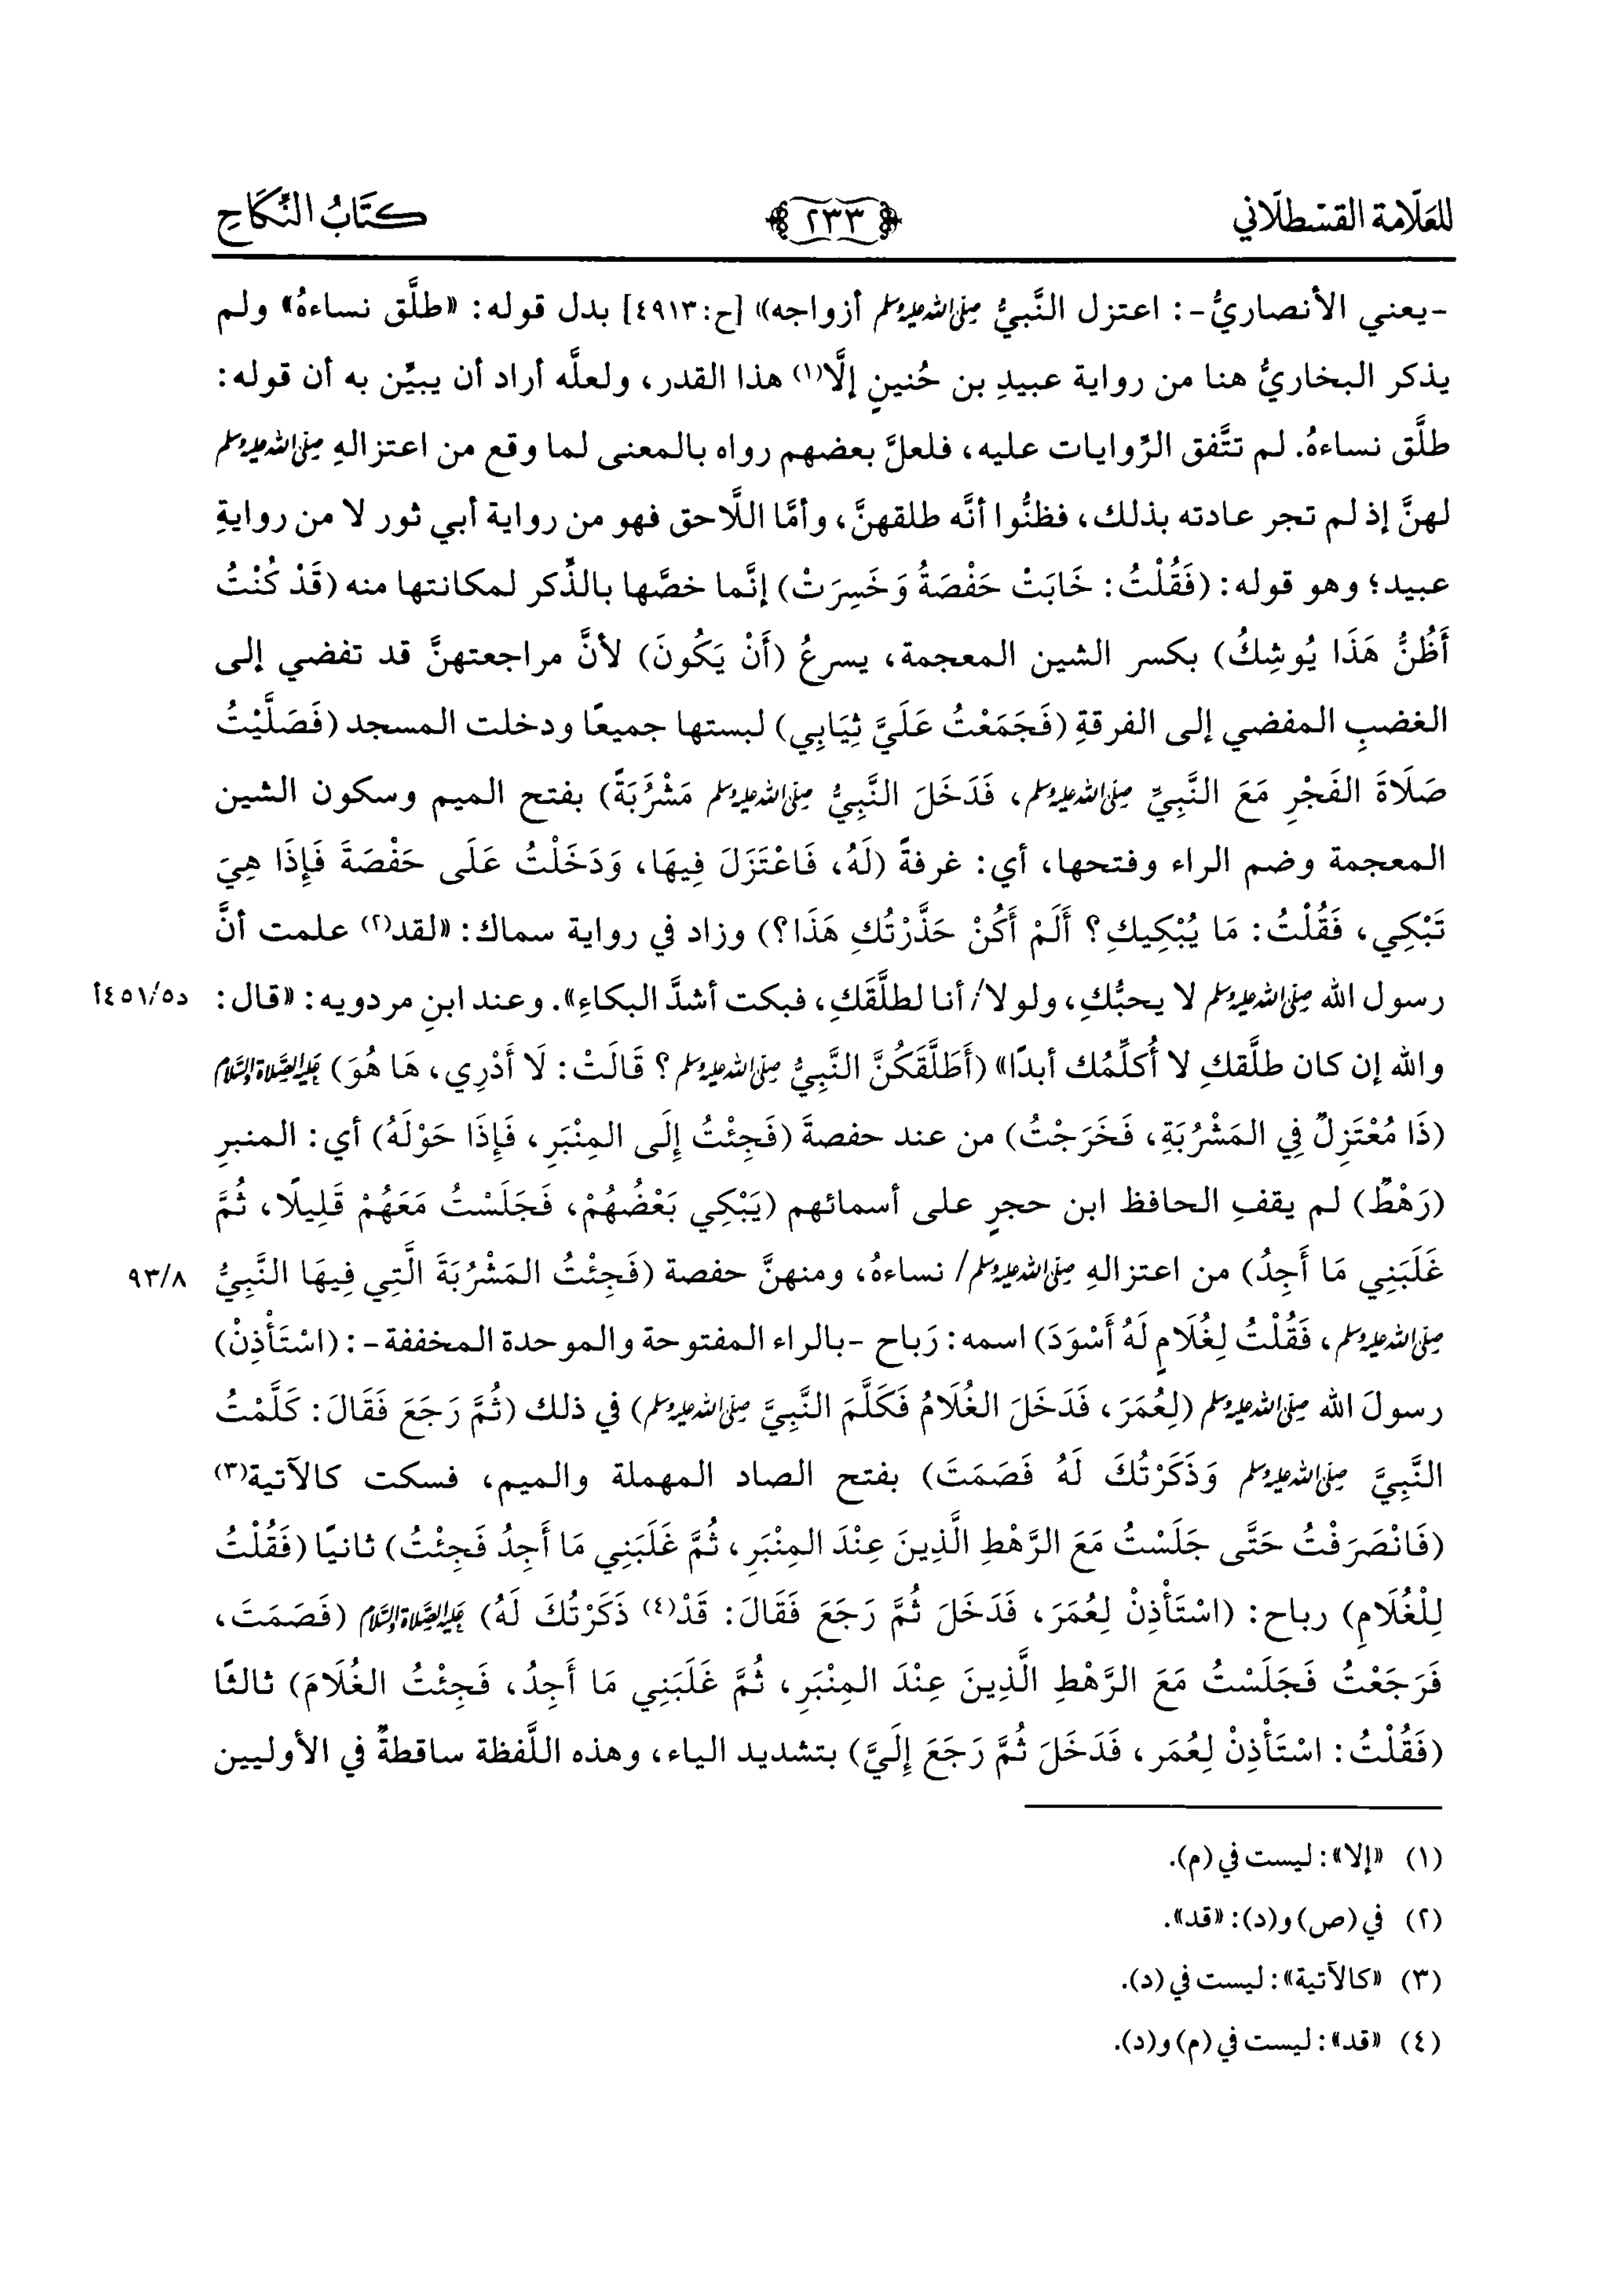 للعلّامة القسْطلّاني ٢٣٣ كتَابُ النِّكَاحِ
-يعني الأنصاريُّ-: اعتزل النَّبيُّ صلى الله عليه وسلم أزواجه» [ح:٤٩١٣] بدل قوله: «طلَّق نساءهُ» ولم
يذكر البخاريُّ هنا من رواية عبيدِ بن حُنينٍ إلَّا(١) هذا القدر، ولعلَّه أراد أن يبيِّن به أن قوله:
طلَّق نساءهُ. لم تتَّفق الرِّوايات عليه، فلعلَّ بعضهم رواه بالمعنى لما وقع من اعتزالهِ صلى الله عليه وسلم
لهنَّ إذ لم تجر عادته بذلك، فظنُّوا أنَّه طلقهنَّ، وأمَّا اللَّاحق فهو من رواية أبي ثور لا من روايةِ
عبيد؛ وهو قوله: (فَقُلْتُ: خَابَتْ حَفْصَةُ وَخَسِرَتْ) إنَّما خصَّها بالذِّكر لمكانتها منه (قَدْ كُنْتُ
أَظُنُّ هَذَا يُوشِكُ) بكسر الشين المعجمة، يسرعُ (أَنْ يَكُونَ) لأنَّ مراجعتهنَّ قد تفضي إلى
الغضبِ المفضي إلى الفرقةِ (فَجَمَعْتُ عَلَيَّ ثِيَابِي) لبستها جميعًا ودخلت المسجد (فَصَلَّيْتُ
صَلَاةَ الفَجْرِ مَعَ النَّبِيِّ صلى الله عليه وسلم، فَدَخَلَ النَّبِيُّ صلى الله عليه وسلم مَشْرُبَةً) بفتح الميم وسكون الشين
المعجمة وضم الراء وفتحها، أي: غرفةً (لَهُ، فَاعْتَزَلَ فِيهَا، وَدَخَلْتُ عَلَى حَفْصَةَ فَإِذَا هِيَ
تَبْكِي، فَقُلْتُ: مَا يُبْكِيكِ؟ أَلَمْ أَكُنْ حَذَّرْتُكِ هَذَا؟) وزاد في رواية سماك: «لقد(٢) علمت أنَّ
رسول الله صلى الله عليه وسلم لا يحبُّكِ، ولولا/ أنا لطلَّقَكِ، فبكت أشدَّ البكاءِ». وعند ابنِ مردويه: «قال: د٤٥١/٥أ
والله إن كان طلَّقكِ لا أُكلِّمُك أبدًا» (أَطَلَّقَكُنَّ النَّبِيُّ صلى الله عليه وسلم؟ قَالَتْ: لَا أَدْرِي، هَا هُوَ) عليه الصلاة والسلام
(ذَا مُعْتَزِلٌ فِي المَشْرُبَةِ، فَخَرَجْتُ) من عند حفصةَ (فَجِئْتُ إِلَى المِنْبَرِ، فَإِذَا حَوْلَهُ) أي: المنبرِ
(رَهْطٌ) لم يقفِ الحافظ ابن حجرٍ على أسمائهم (يَبْكِي بَعْضُهُمْ، فَجَلَسْتُ مَعَهُمْ قَلِيلًا، ثُمَّ
غَلَبَنِي مَا أَجِدُ) من اعتزالهِ صلى الله عليه وسلم/ نساءهُ، ومنهنَّ حفصة (فَجِئْتُ المَشْرُبَةَ الَّتِي فِيهَا النَّبِيُّ ٩٣/٨
صلى الله عليه وسلم، فَقُلْتُ لِغُلَامٍ لَهُ أَسْوَدَ) اسمه: رَباح -بالراء المفتوحة والموحدة المخففة-: (اسْتَأْذِنْ)
رسولَ الله صلى الله عليه وسلم (لِعُمَرَ، فَدَخَلَ الغُلَامُ فَكَلَّمَ النَّبِيَّ صلى الله عليه وسلم) في ذلك (ثُمَّ رَجَعَ فَقَالَ: كَلَّمْتُ
النَّبِيَّ صلى الله عليه وسلم وَذَكَرْتُكَ لَهُ فَصَمَتَ) بفتح الصاد المهملة والميم، فسكت كالآتية(٣)
(فَانْصَرَفْتُ حَتَّى جَلَسْتُ مَعَ الرَّهْطِ الَّذِينَ عِنْدَ المِنْبَرِ، ثُمَّ غَلَبَنِي مَا أَجِدُ فَجِئْتُ) ثانيًا (فَقُلْتُ
لِلْغُلَامِ) رباح: (اسْتَأْذِنْ لِعُمَرَ، فَدَخَلَ ثُمَّ رَجَعَ فَقَالَ: قَدْ(٤) ذَكَرْتُكَ لَهُ) عليه الصلاة والسلام (فَصَمَتَ،
فَرَجَعْتُ فَجَلَسْتُ مَعَ الرَّهْطِ الَّذِينَ عِنْدَ المِنْبَرِ، ثُمَّ غَلَبَنِي مَا أَجِدُ، فَجِئْتُ الغُلَامَ) ثالثًا
(فَقُلْتُ: اسْتَأْذِنْ لِعُمَر، فَدَخَلَ ثُمَّ رَجَعَ إِلَيَّ) بتشديد الياء، وهذه اللَّفظة ساقطةٌ في الأوليين
(١) «إلا»: ليست في (م).
(٢) في (ص) و(د): «قد».
(٣) «كالآتية»: ليست في (د).
(٤) «قد»: ليست في (م) و(د).